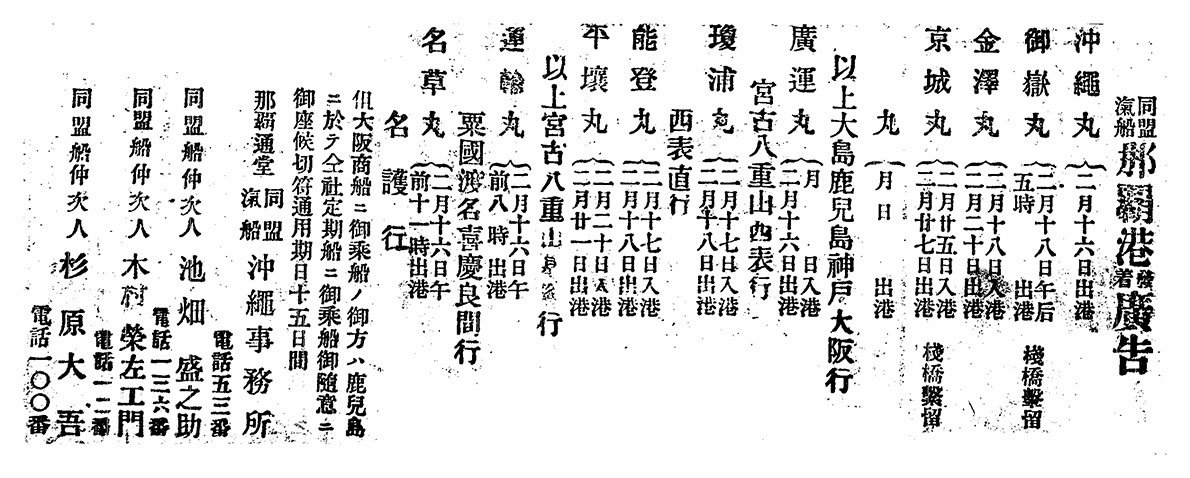 同盟汽船 那覇港發着廣告
沖繩丸 二月十六日出港
御嶽丸 二月十八日午后五時 出港 棧橋繫留
金澤丸 二月十八日入港 二月二十日出港
京城丸 二月廿五日入港 二月廿七日出港 棧橋繫留
丸 月 日 出港
以上大島鹿兒島神戸大阪行
廣運丸 月 日入港 二月十六日出港
宮古八重山西表行
瓊浦丸 二月十七日入港 二月十八日出港
西表直行
能登丸 二月十七日入港 二月十八日出港
平壤丸 二月二十日入港 二月廿一日出港
以上宮古八重山 行
運輸丸 二月十六日午前八時 出港
粟國渡名喜慶良間行
名草丸 二月十六日午前十一時出港
名護行
但大阪商船ニ御乘船ノ御方ハ鹿兒島
ニ於テ仝社定期船ニ御乘船御隨意ニ
御座候切符通用期日十五日間
那覇通堂 同盟汽船 沖繩事務所
電話五三番
同盟船仲次人 池畑盛之助
電話一三六番
同盟船仲次人 木村榮左工門
電話一二番
同盟船仲次人 杉原大吾
電話一〇〇番